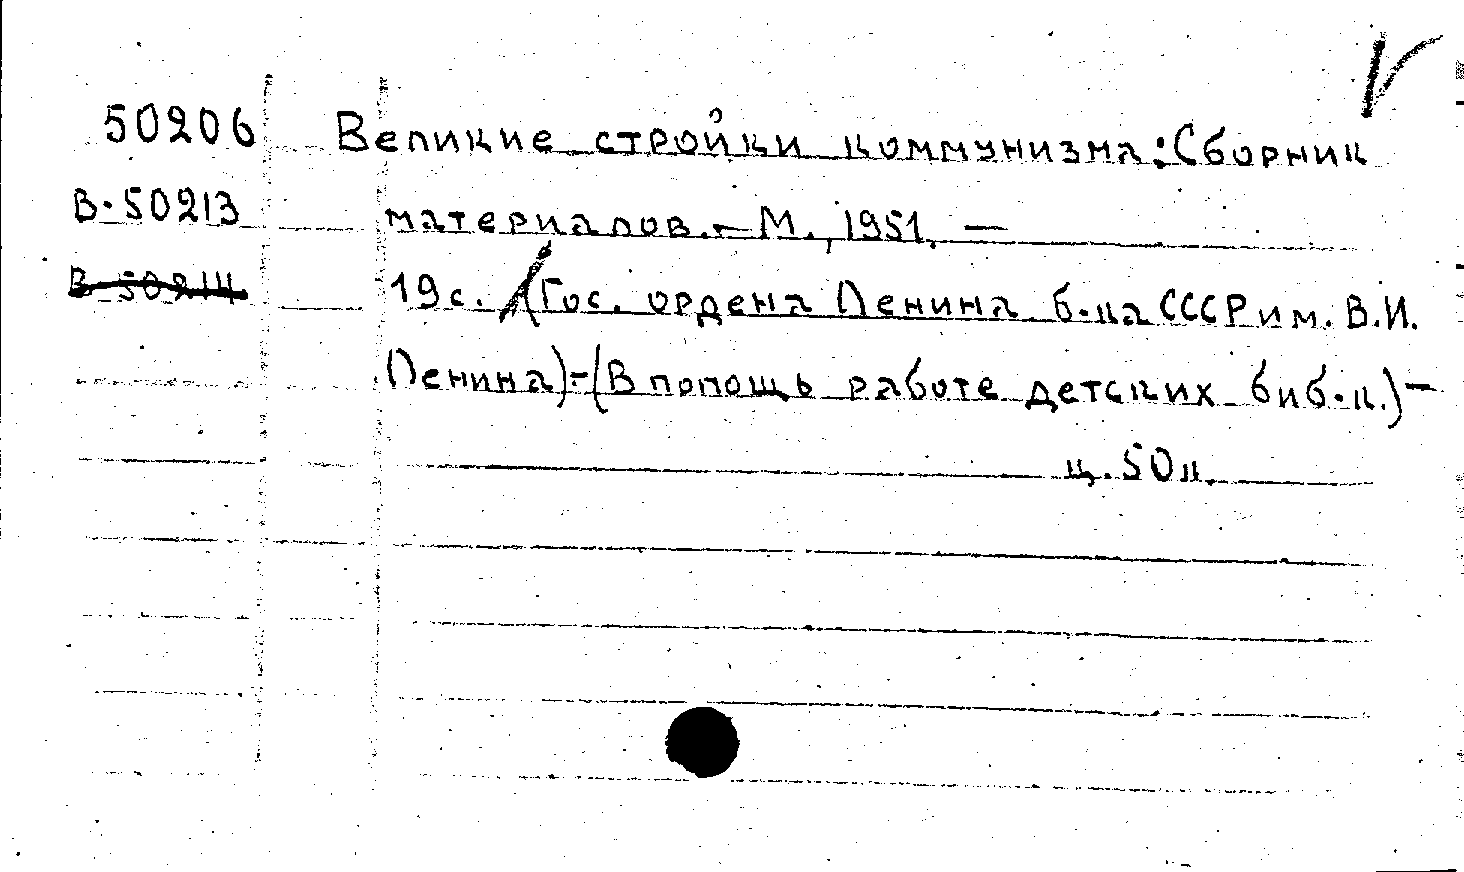 50206 Великие стройки коммунизма: Сборник
В-50213 материалов. - М., 1951. —
В-50214 19 с. (Гос. ордена Ленина б-ка СССР им. В.И.
Ленина) - (В помощь работе детских биб-к.) -
ц. 50 к.